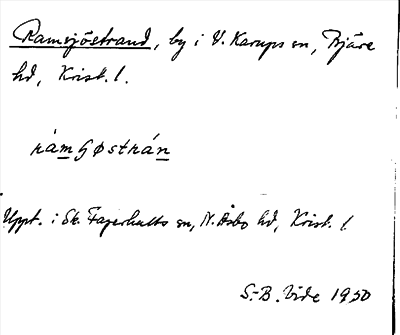 Ramsjöstrand, by i V. Karups sn, Bjäre
hd, Krist. l.
ràmʃøstrán
Uppt. i Sk. Fagerhults sn, N. Åsbo hd, Krist. l
S.-B. Vide 1950